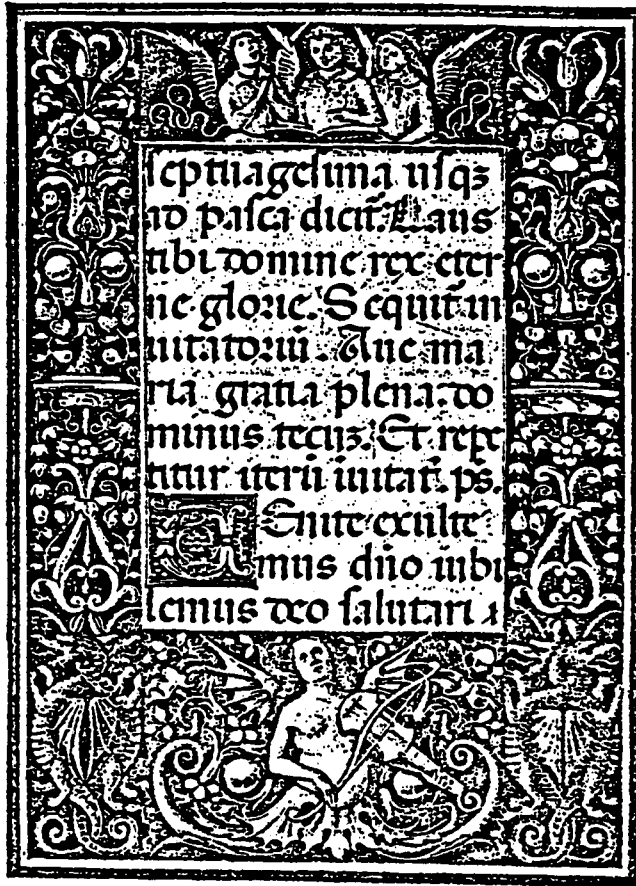 septuagesima usqꝫ
ad pasca dicit̃. Laus
tibi domine rex eter
ne glorie. Sequit̃ in
uitatoriũ. Aue ma
ria gratia plena do
minus tecũ. Et repe
titur iterũ iuitat̃. ps.
Enite exulte
mus dño iubi
lemus deo salutari